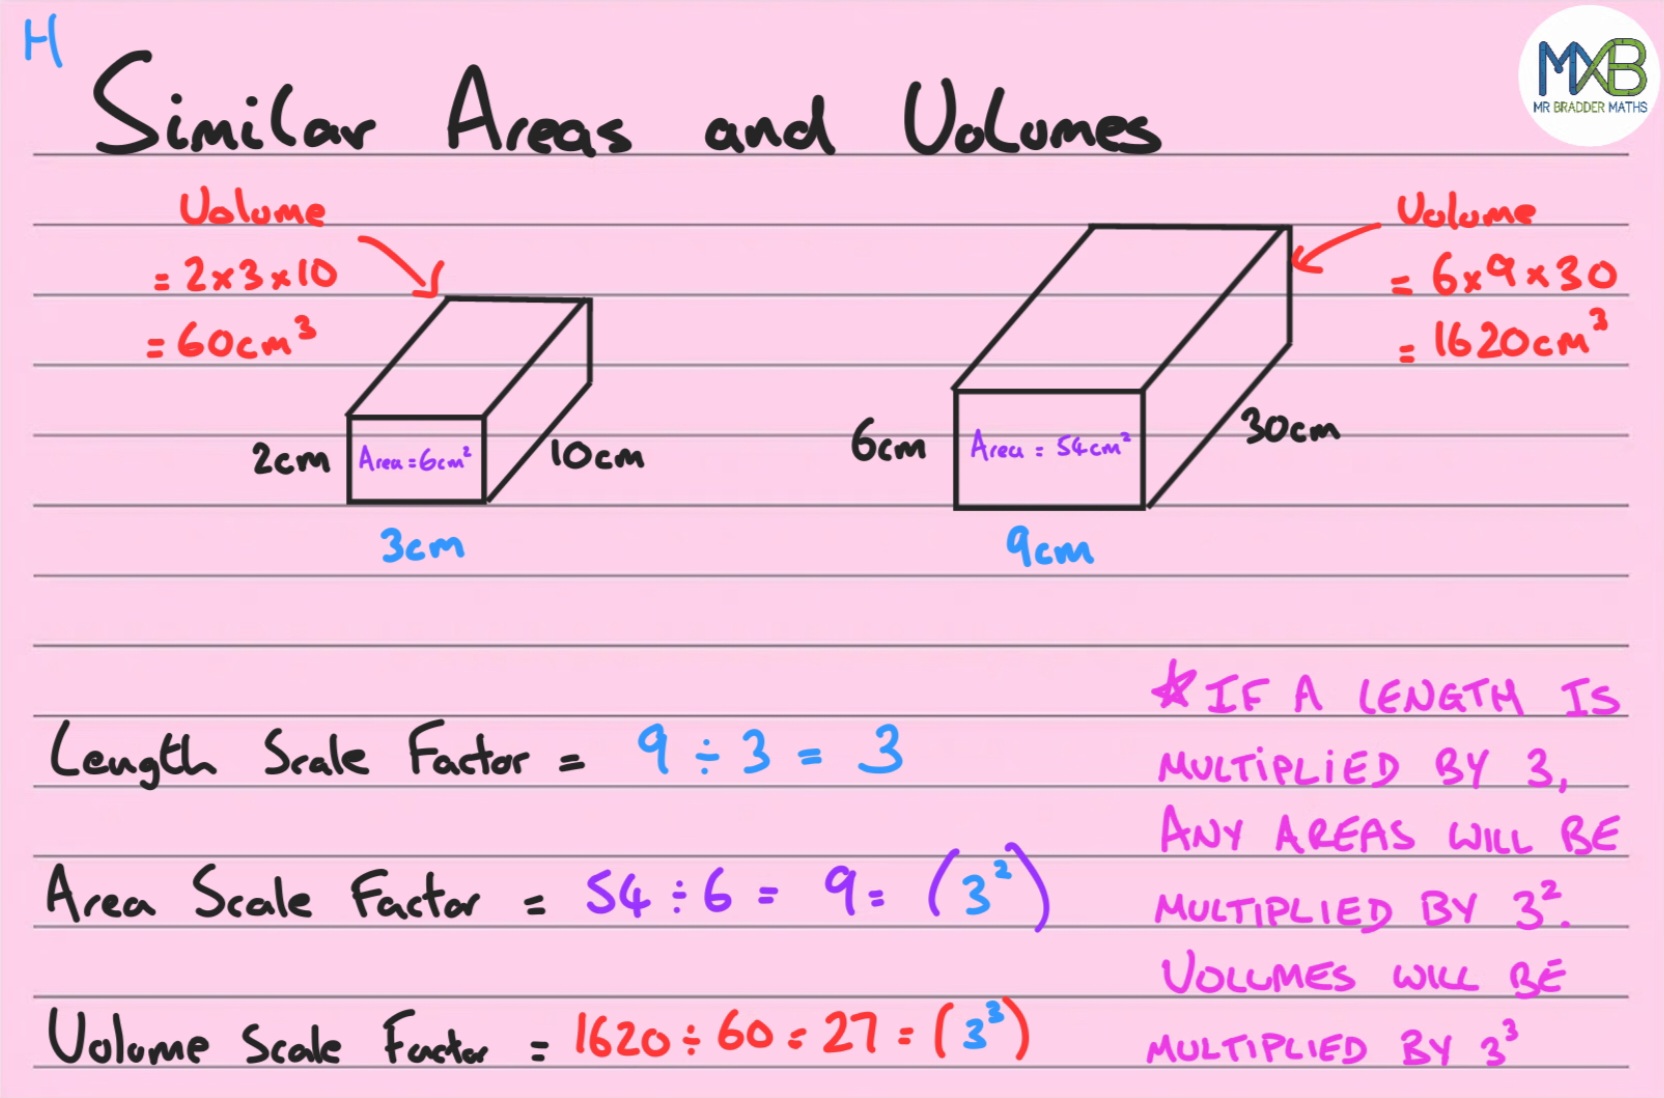 H
MXB
MR BRADDER MATHS
Similar Areas and Volumes
Volume
= 2×3×10
= 60cm³
2cm
Area=6cm²
10cm
3cm
Volume
= 6×9×30
= 1620cm³
6cm
Area = 54cm²
30cm
9cm
Length Scale Factor = 9 ÷ 3 = 3
Area Scale Factor = 54 ÷ 6 = 9 = (3²)
Volume Scale Factor = 1620 ÷ 60 = 27 = (3³)
★ IF A LENGTH IS
MULTIPLIED BY 3,
ANY AREAS WILL BE
MULTIPLIED BY 3².
VOLUMES WILL BE
MULTIPLIED BY 3³